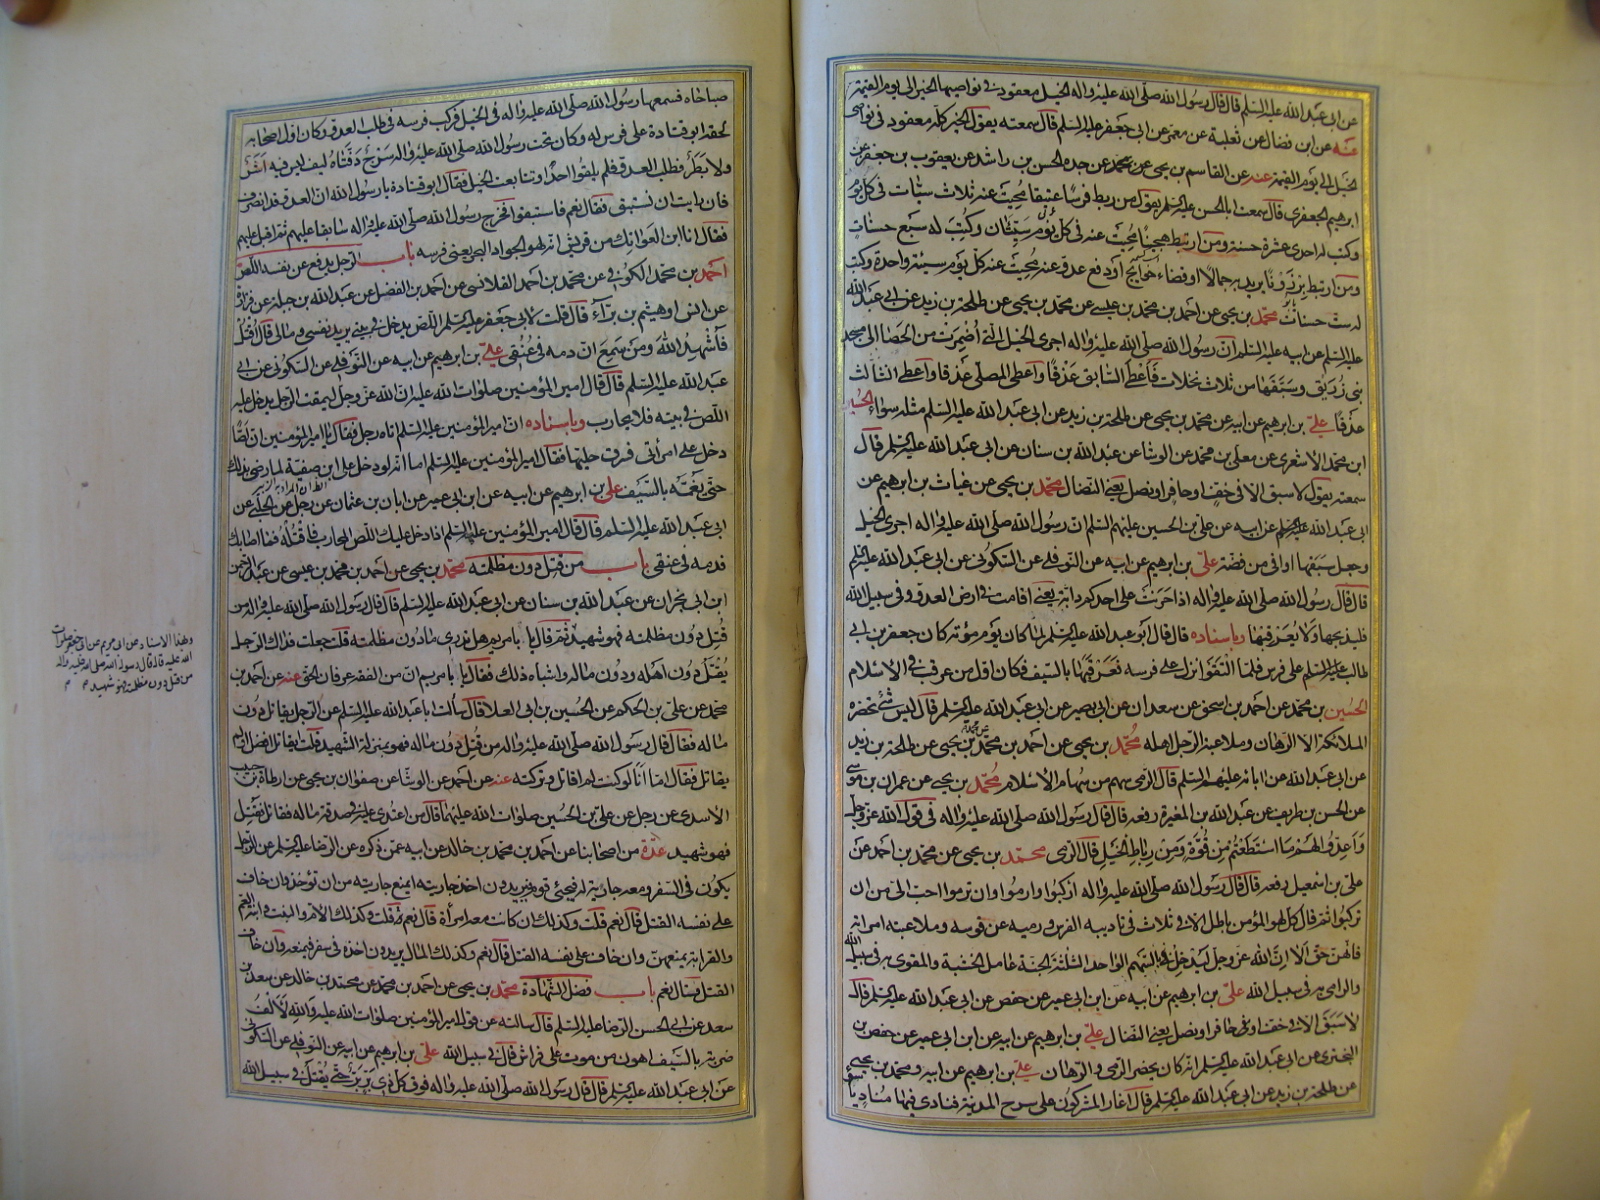 عن ابى عبد الله عليه السلم قال قال رسول الله صلى الله عليه واله الخيل معقود فى نواصيها الخير الى يوم القيمة
عنه عن ابن فضال عن ثعلبة عن معمر عن ابى جعفر عليه السلم قال سمعته يقول الخير كله معقود فى نواصى
الخيل الى يوم القيمة عنه عن القاسم بن يحيى عن محمد عن جده الحسن بن راشد عن يعقوب بن جعفر عن
ابرهيم الجعفرى قال سمعت ابا الحسن عليه السلم يقول من ربط فرسا عتيقا محيت عنه ثلاث سيئات فى كل يوم
وكتب له احدى عشرة حسنة ومن ارتبط هجينا محيت عنه فى كل يوم سيئتان وكتب له سبع حسنات
ومن ارتبط برذونا يريد به جمالا او قضاء حوائج او دفع عدو عنه محيت عنه كل يوم سيئة واحدة وكتب
له ست حسنات محمد بن يحيى عن احمد بن محمد بن عيسى عن محمد بن يحيى عن طلحة بن زيد عن ابى عبد الله
عليه السلم عن ابيه عليه السلم ان رسول الله صلى الله عليه واله اجرى الخيل التى اضمرت من الحصا الى مسجد
بنى زريق وسبقها من ثلاث نخلات فاعطى السابق عذقا واعطى المصلى عذقا واعطى الثالث
عذقا على بن ابرهيم عن ابيه عن محمد بن يحيى عن طلحة بن زيد عن ابى عبد الله عليه السلم مثله سواء الحسين
ابن محمد الاشعرى عن معلى بن محمد عن الوشا عن عبد الله بن سنان عن ابى عبد الله عليه السلم قال
سمعته يقول لا سبق الا فى خف او حافر او نصل يعنى النضال محمد بن يحيى عن غياث بن ابرهيم عن
ابى عبد الله عليه السلم عن ابيه عن على بن الحسين عليهم السلم ان رسول الله صلى الله عليه واله اجرى الخيل
وجعل سبقها اواقى من فضة على بن ابرهيم عن ابيه عن النوفلى عن السكونى عن ابى عبد الله عليه السلم
قال قال رسول الله صلى الله عليه واله اذا حرنت على احدكم دابة يعنى اقامت فى ارض العدو وفى سبيل الله
فليذبحها ولا يعرقبها وباسناده قال قال ابو عبد الله عليه السلم لما كان يوم موته كان جعفر بن ابى
طالب عليه السلم على فرس فلما التقوا نزل على فرسه فعرقبها بالسيف فكان اول من عرقب فى الاسلام
الحسين بن محمد عن احمد بن اسحق عن سعدان عن ابى بصير عن ابى عبد الله عليه السلم قال ليس شئ تحضره
الملائكة الا الرهان وملاعبة الرجل اهله محمد بن يحيى عن احمد بن محمد بن يحيى عن طلحة بن زيد
عن ابى عبد الله عن ابائه عليهم السلم قال الرمى سهم من سهام الاسلام محمد بن يحيى عن عمران بن موسى
عن الحسن بن طريف عن عبد الله بن المغيرة رفعه قال قال رسول الله صلى الله عليه واله فى قول الله عز وجل
واعدوا لهم ما استطعتم من قوة ومن رباط الخيل قال الرمى محمد بن يحيى عن محمد بن احمد عن
على بن اسمعيل رفعه قال قال رسول الله صلى الله عليه واله اركبوا وارموا وان ترموا احب الى من ان
تركبوا ثم قال كل لهو المؤمن باطل الا فى ثلاث فى تاديبه الفرس ورميه عن قوسه وملاعبته امراته
فانهن حق الا ان الله عز وجل ليدخل بالسهم الواحد الثلثة الجنة عامل الخشبة والمقوى به فى سبيل الله
والرامى به فى سبيل الله على بن ابرهيم عن ابيه عن ابن ابى عمير عن حفص عن ابى عبد الله عليه السلم قال
لا سبق الا فى خف او فى حافر او نصل يعنى النضال على بن ابرهيم عن ابيه عن ابن ابى عمير عن حفص بن
البخترى عن ابى عبد الله عليه السلم انه كان يحضر الرمى والرهان على بن ابرهيم عن ابيه ومحمد بن يحيى
عن طلحة بن زيد عن ابى عبد الله عليه السلم قال اغار المشركون على سرح المدينة فنادى فيها مناد يا
صباحاه فسمعها رسول الله صلى الله عليه واله فى الخيل فركب فرسه فى طلب العدو وكان اول اصحابه
لحقه ابو قتادة على فرس له وكان تحت رسول الله صلى الله عليه واله سرج دفتاه ليف ليس فيه اشر
ولا بطر فطلب العدو فلم يلقوا احدا وتتابعت الخيل فقال ابو قتادة يا رسول الله ان العدو قد انصرف
فان رايت ان نستبق فقال نعم فاستبقوا فخرج رسول الله صلى الله عليه واله سابقا عليهم ثم اقبل عليهم
فقال انا ابن العواتك من قريش انه لهو الجواد البحر يعنى فرسه باب الرجل يدفع عن نفسه اللص
احمد بن محمد الكوفى عن محمد بن احمد القلانسى عن احمد بن الفضل عن عبد الله بن جبلة عن فزارة
عن انس او هيثم بن براء قال قلت لابى جعفر عليه السلم اللص يدخل فى بيتى يريد نفسى ومالى قال اقتل
فاشهد الله ومن سمع ان دمه فى عنقى على بن ابرهيم عن ابيه عن النوفلى عن السكونى عن ابى
عبد الله عليه السلم قال قال امير المؤمنين صلوات الله عليه ان الله عز وجل ليمقت الرجل يدخل عليه
اللص فى بيته فلا يحارب وباسناده ان امير المؤمنين عليه السلم اتاه رجل فقال يا امير المؤمنين ان لصا
دخل على امرأتى فسرق حليها فقال امير المؤمنين عليه السلم اما انه لو دخل على ابن صفية لما رضى بذلك
حتى يعمه بالسيف على بن ابرهيم عن ابيه عن ابن ابى عمير عن ابان بن عثمان عن رجل عن الحلبى عن
ابى عبد الله عليه السلم قال قال امير المؤمنين عليه السلم اذا دخل عليك اللص المحارب فاقتله فما اصابك
فدمه فى عنقى باب من قتل دون مظلمته محمد بن يحيى عن احمد بن محمد بن عيسى عن عبد الرحمن
ابن ابى نجران عن عبد الله بن سنان عن ابى عبد الله عليه السلم قال قال رسول الله صلى الله عليه واله من
قتل دون مظلمته فهو شهيد ثم قال يا با مريم هل تدرى ما دون مظلمته قلت جعلت فداك الرجل
يقتل دون اهله ودون ماله واشباه ذلك فقال يا با مريم ان من الفقه عرفان الحق عنه عن احمد بن
محمد عن على بن الحكم عن الحسين بن ابى العلا قال سألت ابا عبد الله عليه السلم عن الرجل يقاتل دون
ماله فقال قال رسول الله صلى الله عليه واله من قتل دون ماله فهو بمنزلة الشهيد قلت ايقاتل افضل او لم
يقاتل فقال اما انا لو كنت لم اقاتل وتركته عنه عن احمد عن الوشا عن صفوان بن يحيى عن ارطاة بن حبيب
الاسدى عن رجل عن على بن الحسين صلوات الله عليهما قال من اعتدى عليه فى صدقة ماله فقاتل فقتل
فهو شهيد عدة من اصحابنا عن احمد بن محمد بن خالد عن ابيه عمن ذكره عن الرضا عليه السلم عن الرجل
يكون فى السفر ومعه جارية له فيجئ قوم يريدون اخذ جاريته ايمنع جاريته من ان تؤخذ وان خاف
على نفسه القتل قال نعم قلت وكذلك ان كانت معه امرأة قال نعم قلت وكذلك الام والبنت وابنة العم
والقرابة يمنعهن وان خاف على نفسه القتل قال نعم وكذلك المال يريدون اخذه فى سفر فيمنعه وان خاف
القتل قال نعم باب فضل الشهادة محمد بن يحيى عن احمد بن محمد عن محمد بن خالد عن سعد بن
سعد عن ابى الحسن الرضا عليه السلم قال سالته عن قول امير المؤمنين صلوات الله عليه والله لالف
ضربة بالسيف اهون من موت على فراش قال فى سبيل الله على بن ابرهيم عن ابيه عن النوفلى عن السكونى
عن ابى عبد الله عليه السلم قال قال رسول الله صلى الله عليه واله فوق كل ذى بر بر حتى يقتل فى سبيل الله
وبهذا الاسناد عن ابى مريم عن ابى جعفر صلوات
الله عليه قال قال رسول الله صلى الله عليه واله
من قتل دون مظلمته فهو شهيد